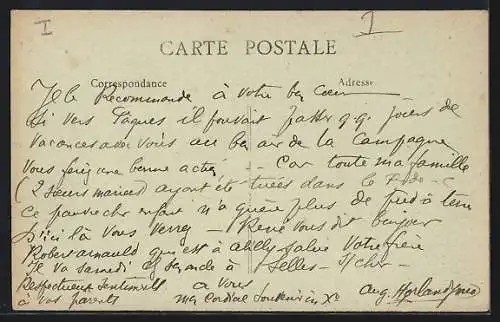 I
CARTE POSTALE
Correspondance
Adresse
Je le Recommande à votre bon Coeur
Si vers Pâques il pouvait passer qq. jours de
vacances avec vous au bon air de la Campagne
vous feriez une bonne action — Car toute ma famille
(2 soeurs mariées) ayant été tuées dans le
ce pauvre cher enfant n'a guère plus de pied à terre
D'ici là vous verrez — René vous dit
Robert qui est à Votre frère
Je va samedi à Selles - s/cher -
Respectueux Sentiments à vous
à vos parents
mon Cordial Souvenir
Aug.